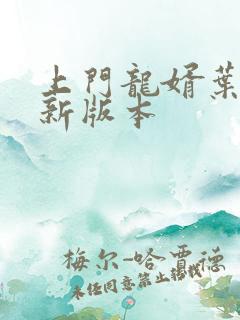 上門龍婿葉
新版本
梅尔-哈賈德
未任同意禁止转载